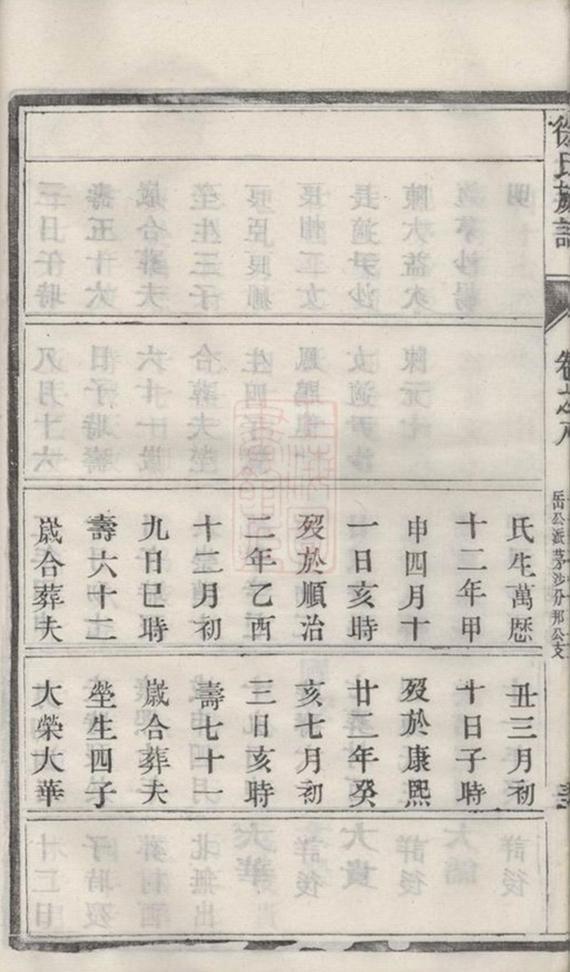 徐氏族譜
卷之八
岳公派茅沙分邦公支
氏生萬歷
十二年甲
申四月十
一日亥時
歿於順治
二年乙酉
十二月初
九日巳時
壽六十二
歲合葬夫
丑三月初
十日子時
歿於康熙
廿二年癸
亥七月初
三日亥時
壽七十一
歲合葬夫
塋生四子
大榮大華